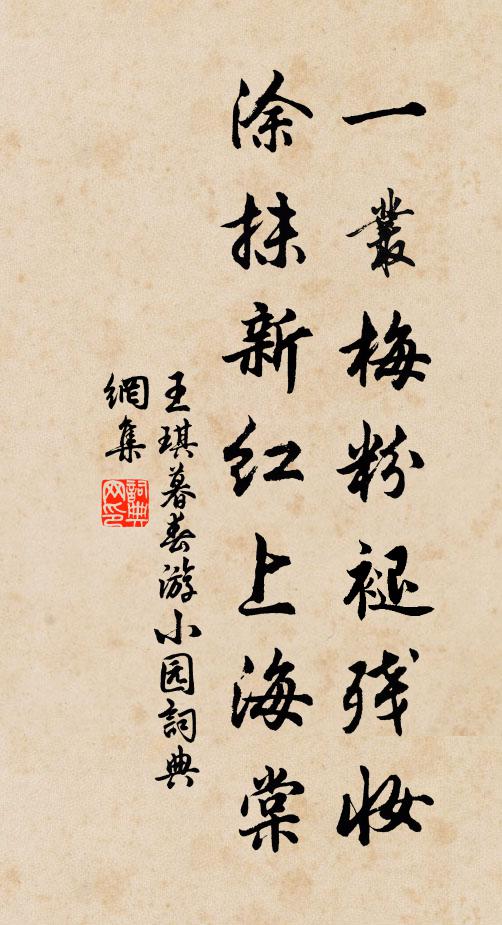 一叢梅粉褪残妆
涂抹新红上海棠
王琪暮春游小园詞典
網集
詞典
网印